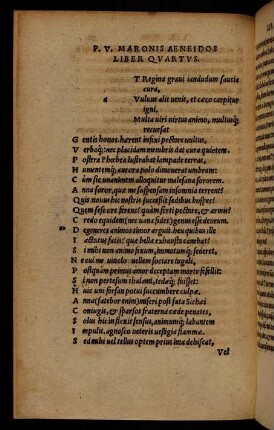 P. V. MARONIS AENEIDOS
LIBER QVARTVS.
a
T Regina graui iandudum saucia
cura,
Vulnus alit uenis, et cæco carpitur
igni.
Multa uiri uirtus animo, multusq;
recursat
G entis honos. hærent infixi pectore uultus,
V erbaq́;: nec placidam membris dat cura quietem.
P ostera Phœbea lustrabat lampade terras,
H umentemq́; aurora polo dimouerat umbram:
C um sic unanimem alloquitur malesana sororem.
A nna soror, quæ me suspensam insomnia terrent?
Q uis nouus hic nostris successit sedibus hospes?
Q uem sese ore ferens? quàm forti pectore, et armis?
C redo equidem (nec uana fides) genus esse deorum.
D egeneres animos timor arguit. heu quibus ille
I actatus fatis? quæ bella exhausta canebat?
S i mihi non animo fixum, immotumq́; sederet,
N e cui me uinclo uellem sociare iugali,
P ostquàm primus amor deceptam morte fefellit:
S i non pertæsum thalami, tedæq́; fuisset:
H uic uni forsan potui succumbere culpæ.
A nna (fatebor enim) miseri post fata Sichæi
C oniugis, et sparsos fraterna cæde penates,
S olus hic inflexit sensus, animumq́; labantem
I mpulit, agnosco ueteris uestigia flammæ.
S ed mihi uel tellus optem prius ima dehiscat,
Vel